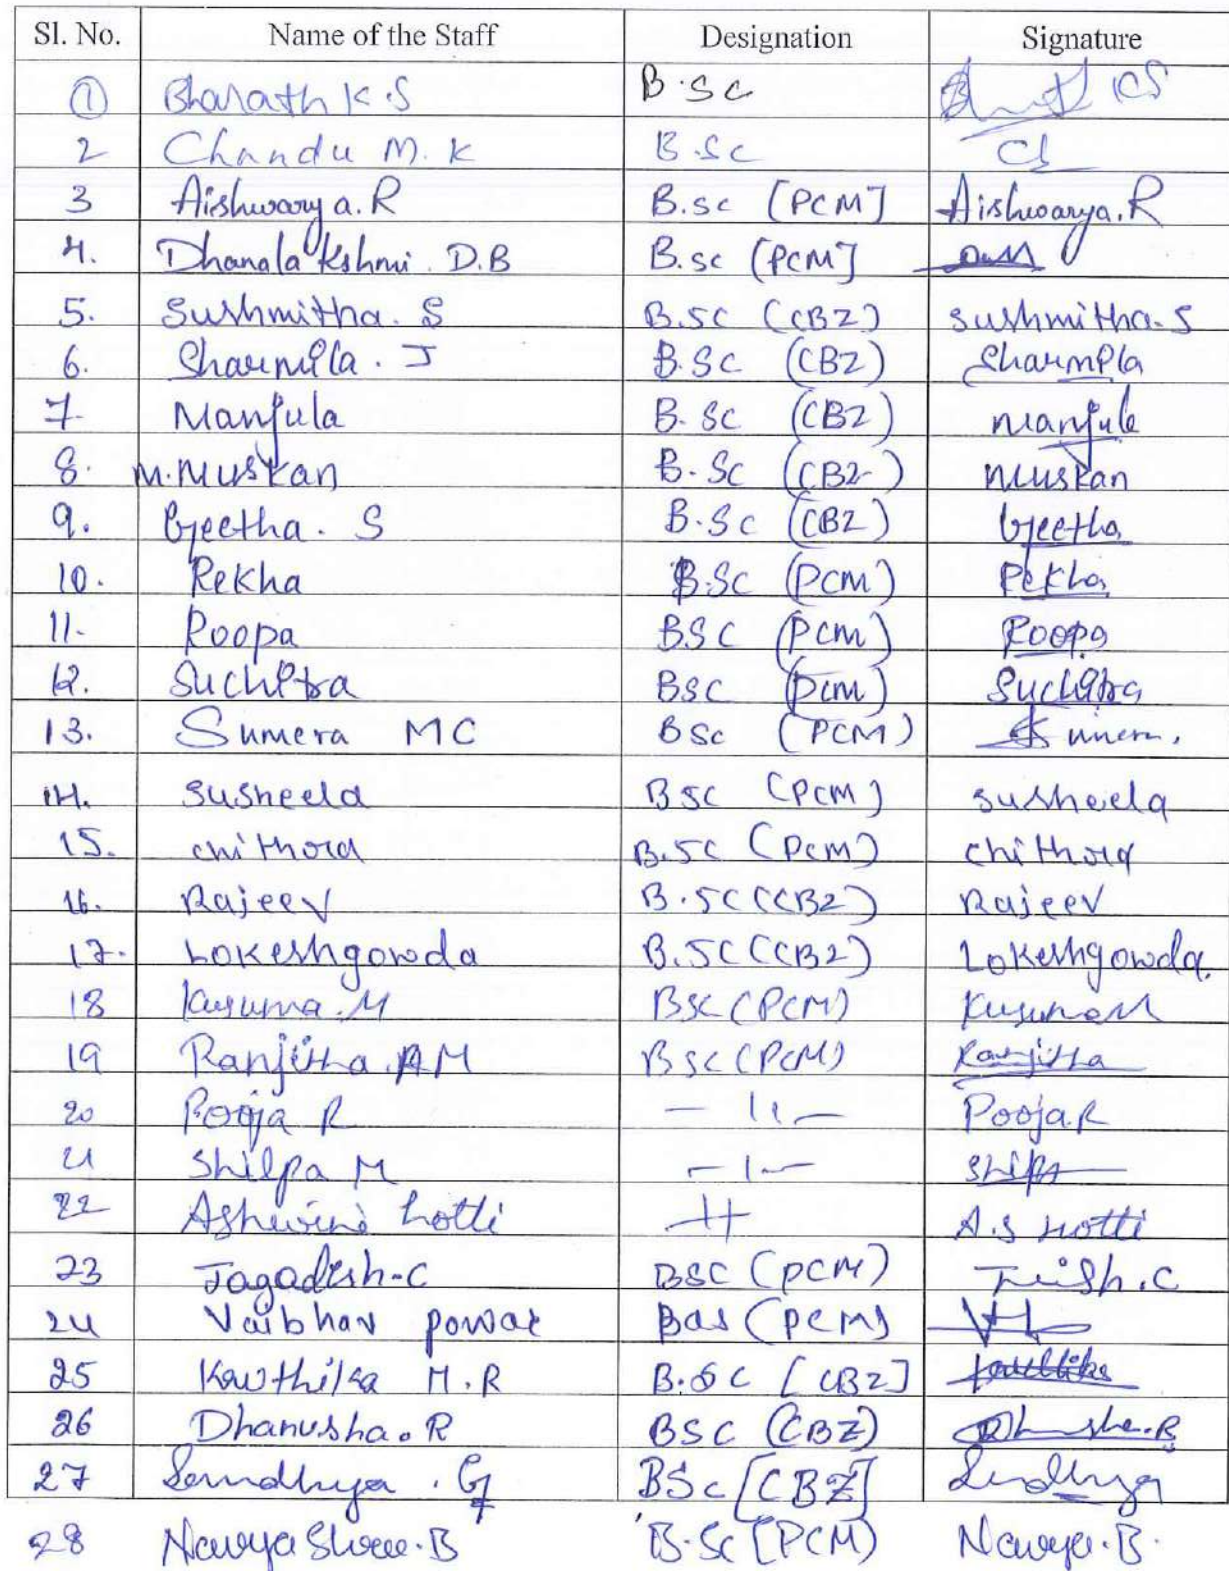 Sl. No. Name of the Staff Designation Signature
1 Bharath K.S B.Sc KS
2 Chandu M.K B.Sc
3 Aishwarya.R B.sc [PCM] Aishwarya.R
4. Dhanalakshmi D.B B.sc [PCM]
5. Sushmitha. S B.SC (CBZ) Sushmitha.S
6. Sharmila. J B.SC (CBZ) Sharmila
7. Manjula B.SC (CBZ) Manjula
8. M.Muskan B.Sc (CBZ) Muskan
9. Geetha. S B.Sc (CBZ) Geetha
10. Rekha B.SC (PCM) Rekha
11. Roopa BSC (PCM) Roopa
12. Suchitra BSC (PCM) Suchitra
13. Sumera MC BSc (PCM) Sumera.
14. Susheela BSC (PCM) Susheela
15. chithora B.SC (PCM) chithora
16. Rajeev B.SC (CBZ) Rajeev
17. Lokeshgowda B.SC (CBZ) Lokeshgowda.
18 Kusuma.M BSC (PCM) Kusuma M
19 Ranjitha.AM BSC (PCM) Ranjitha
20 Pooja R — 11 — Pooja R
21 Shilpa M — 1 — Shilpa
22 Ashwini hotti A.S Hotti
23 Jagadish.C BSC (PCM)
24 Vaibhav powar Bas (PCM)
25 Kowthika M.R B.SC [CBZ]
26 Dhanusha.R BSC (CBZ) Dhanusha.R
27 Sandhya .G BSc [CBZ] Sandhya
28 Navya Shree.B B.Sc [PCM) Navya.B.